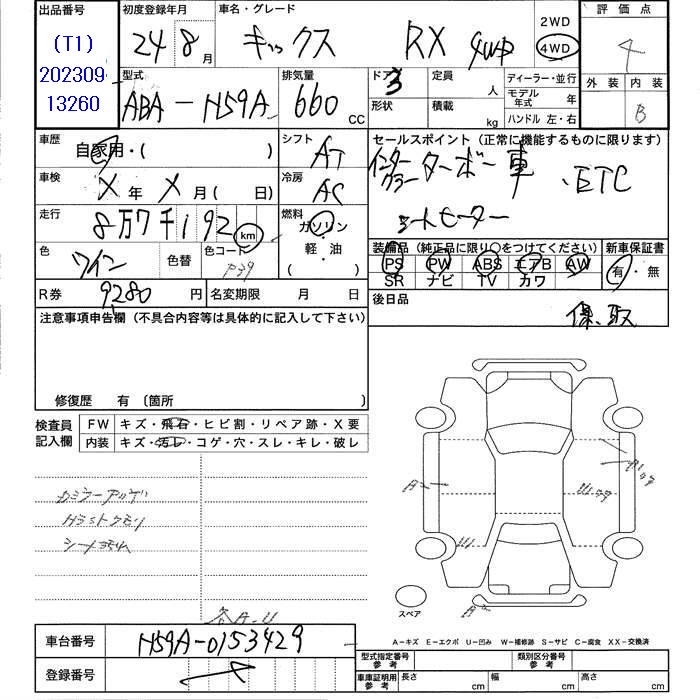 出品番号 初度登録年月 車名・グレード 2WD 評価点
(T1) 24 8月 キックス RX 4WD 4WD 4
202309 型式 排気量 ドア 3 定員 人 ディーラー・並行 外装 内装
13260 ABA-H59A 660 CC 形状 積載 kg モデル年式 年 B
ハンドル 左・右
車歴 自家用・( ) シフト AT セールスポイント (正常に機能するものに限ります)
車検 X年 X月( 日) 冷房 AC インタークーラーターボ車 、ETC
走行 8万7千192 km 燃料 ガソリン・軽・油 ( ) シートヒーター
色 ワイン 色替 色コード P39 装備品 (純正品に限り○をつけてください) 新車保証書
PS PW ABS エアB AW 有・無
SR ナビ TV カワ
R券 9280円 名変期限 月 日 後日品
注意事項申告欄 (不具合内容等は具体的に記入して下さい) 保、取
修復歴 有 〔箇所
検査員 FW キズ・飛石・ヒビ割・リペア跡・X要
記入欄 内装 キズ・汚レ・コゲ・穴・スレ・キレ・破レ
A
シート汚れ
スペア A
各A-U
A-キズ E-エクボ U-凹み W-補修跡 S-サビ C-腐食 XX-交換済
車台番号 H59A-0153429
型式指定番号 参考 類別区分番号 参考
登録番号
車庫証明用 参考 長さ cm 幅 cm 高さ cm